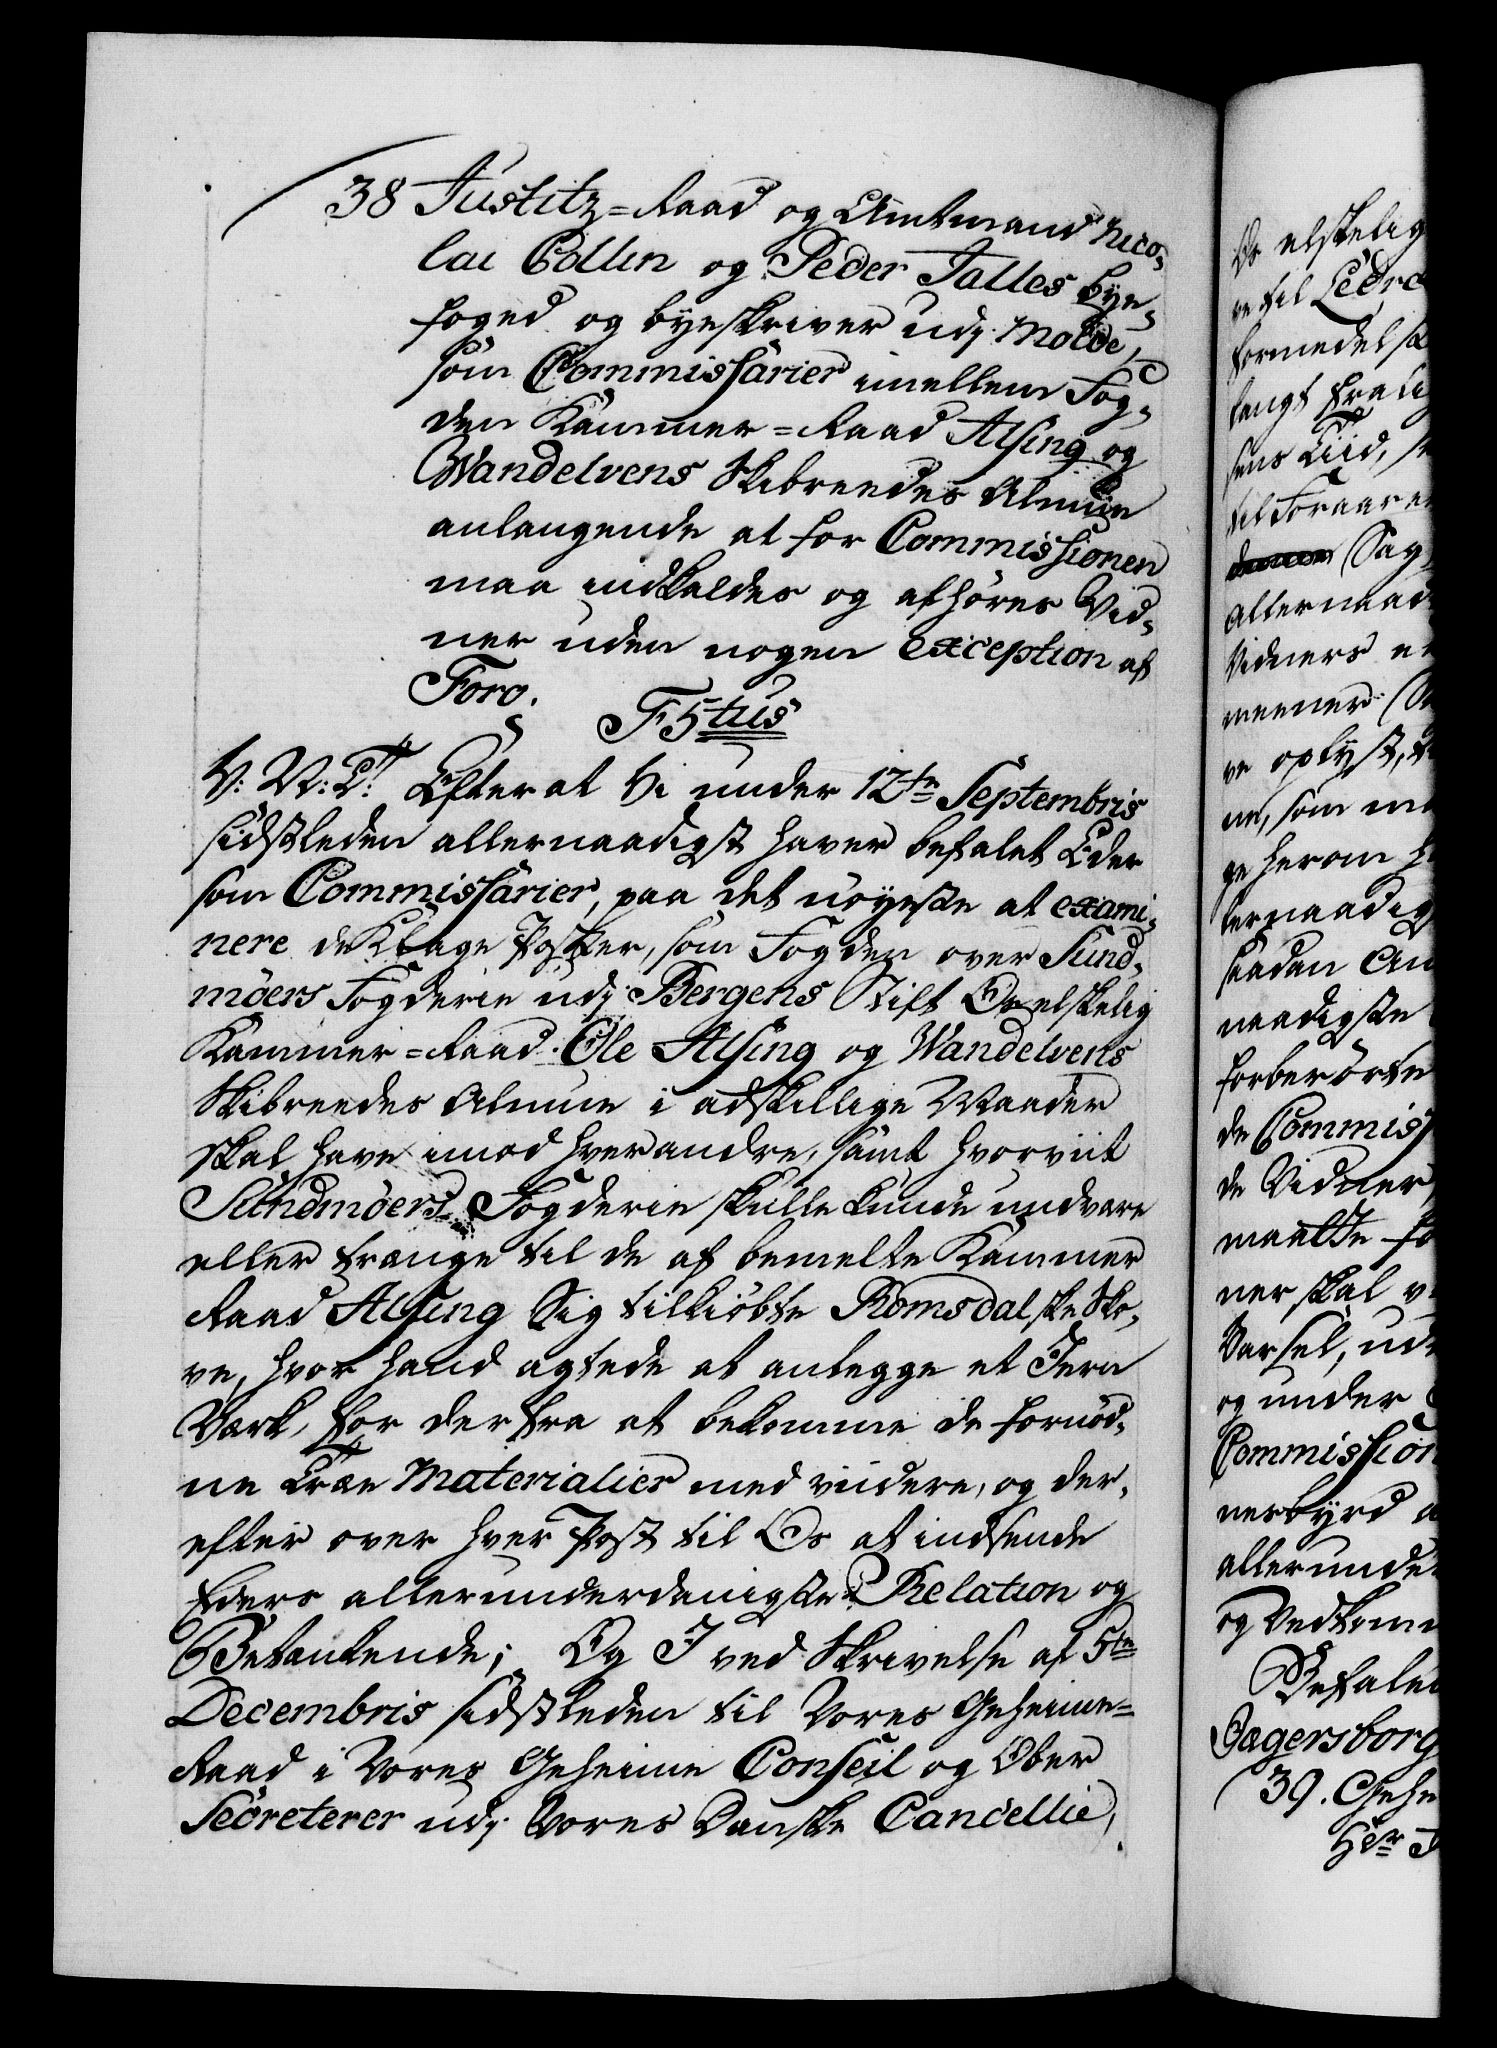 38 Justitz=Raad og Amtmand Nico-
lai Collin og Peder Falles bye-
foged og byeskriver udj Molde,
som Commissarier imellem Fog-
den Kammer=Raad Alsing og
Wandelvens Skibreedes Almue
anlangende at for Commissionen
maa indkaldes og afhøres Vid-
ner uden nogen exception af
Foro.
F 5tus
V: V: G: Efter at Vi under 12te Septembris
sidstleden allernaadigst haver befalet Eder
som Commissarier, paa det nøyeste at exami-
nere de Klage Poster, som Fogden over Sund-
möers Fogderie udj Bergens Stift Os elskelig
Kammer=Raad Ole Alsing og Wandelvens
Skibreedes Almue i adskillige Maader
skal have imod hverandre, samt hvorviit
Sundmöers Fogderie skulle kunde undvære
eller trænge til de af bemelte Kammer
Raad Alsing Sig tilkiøbte Romsdalske Sko-
ve, hvor hand agtede at anlegge et Jern
Værk, for der fra at bekomme de fornød-
ne Træe Materialier med viidere, og der-
efter over hver Post til Os at indsende
Eders allerunderdanigste Relation og
Betænkende; Og I ved Skrivelse af 5te
Decembris sidstleden til Vores Geheime=
Raad i Vores Geheime Conseil og Ober
Secreterer udj Vores Danske Cancellie,
Os elskelig
ve til Ledra
formedelst
langt fra
sens Tiid,
til Foraaret
Sag
Allernaad
Vidners
meener
ve oplyst,
ne, som
ge herom
lernaadig
saadan An
naadigste
forberørte
de Commiss
de Vidner
maatte
ner skal
Varsel, ud
og under
Commission
nesbyrd
allerunder
og Vedkom
Befalen
Jagersborg
39. Gehe
Hr